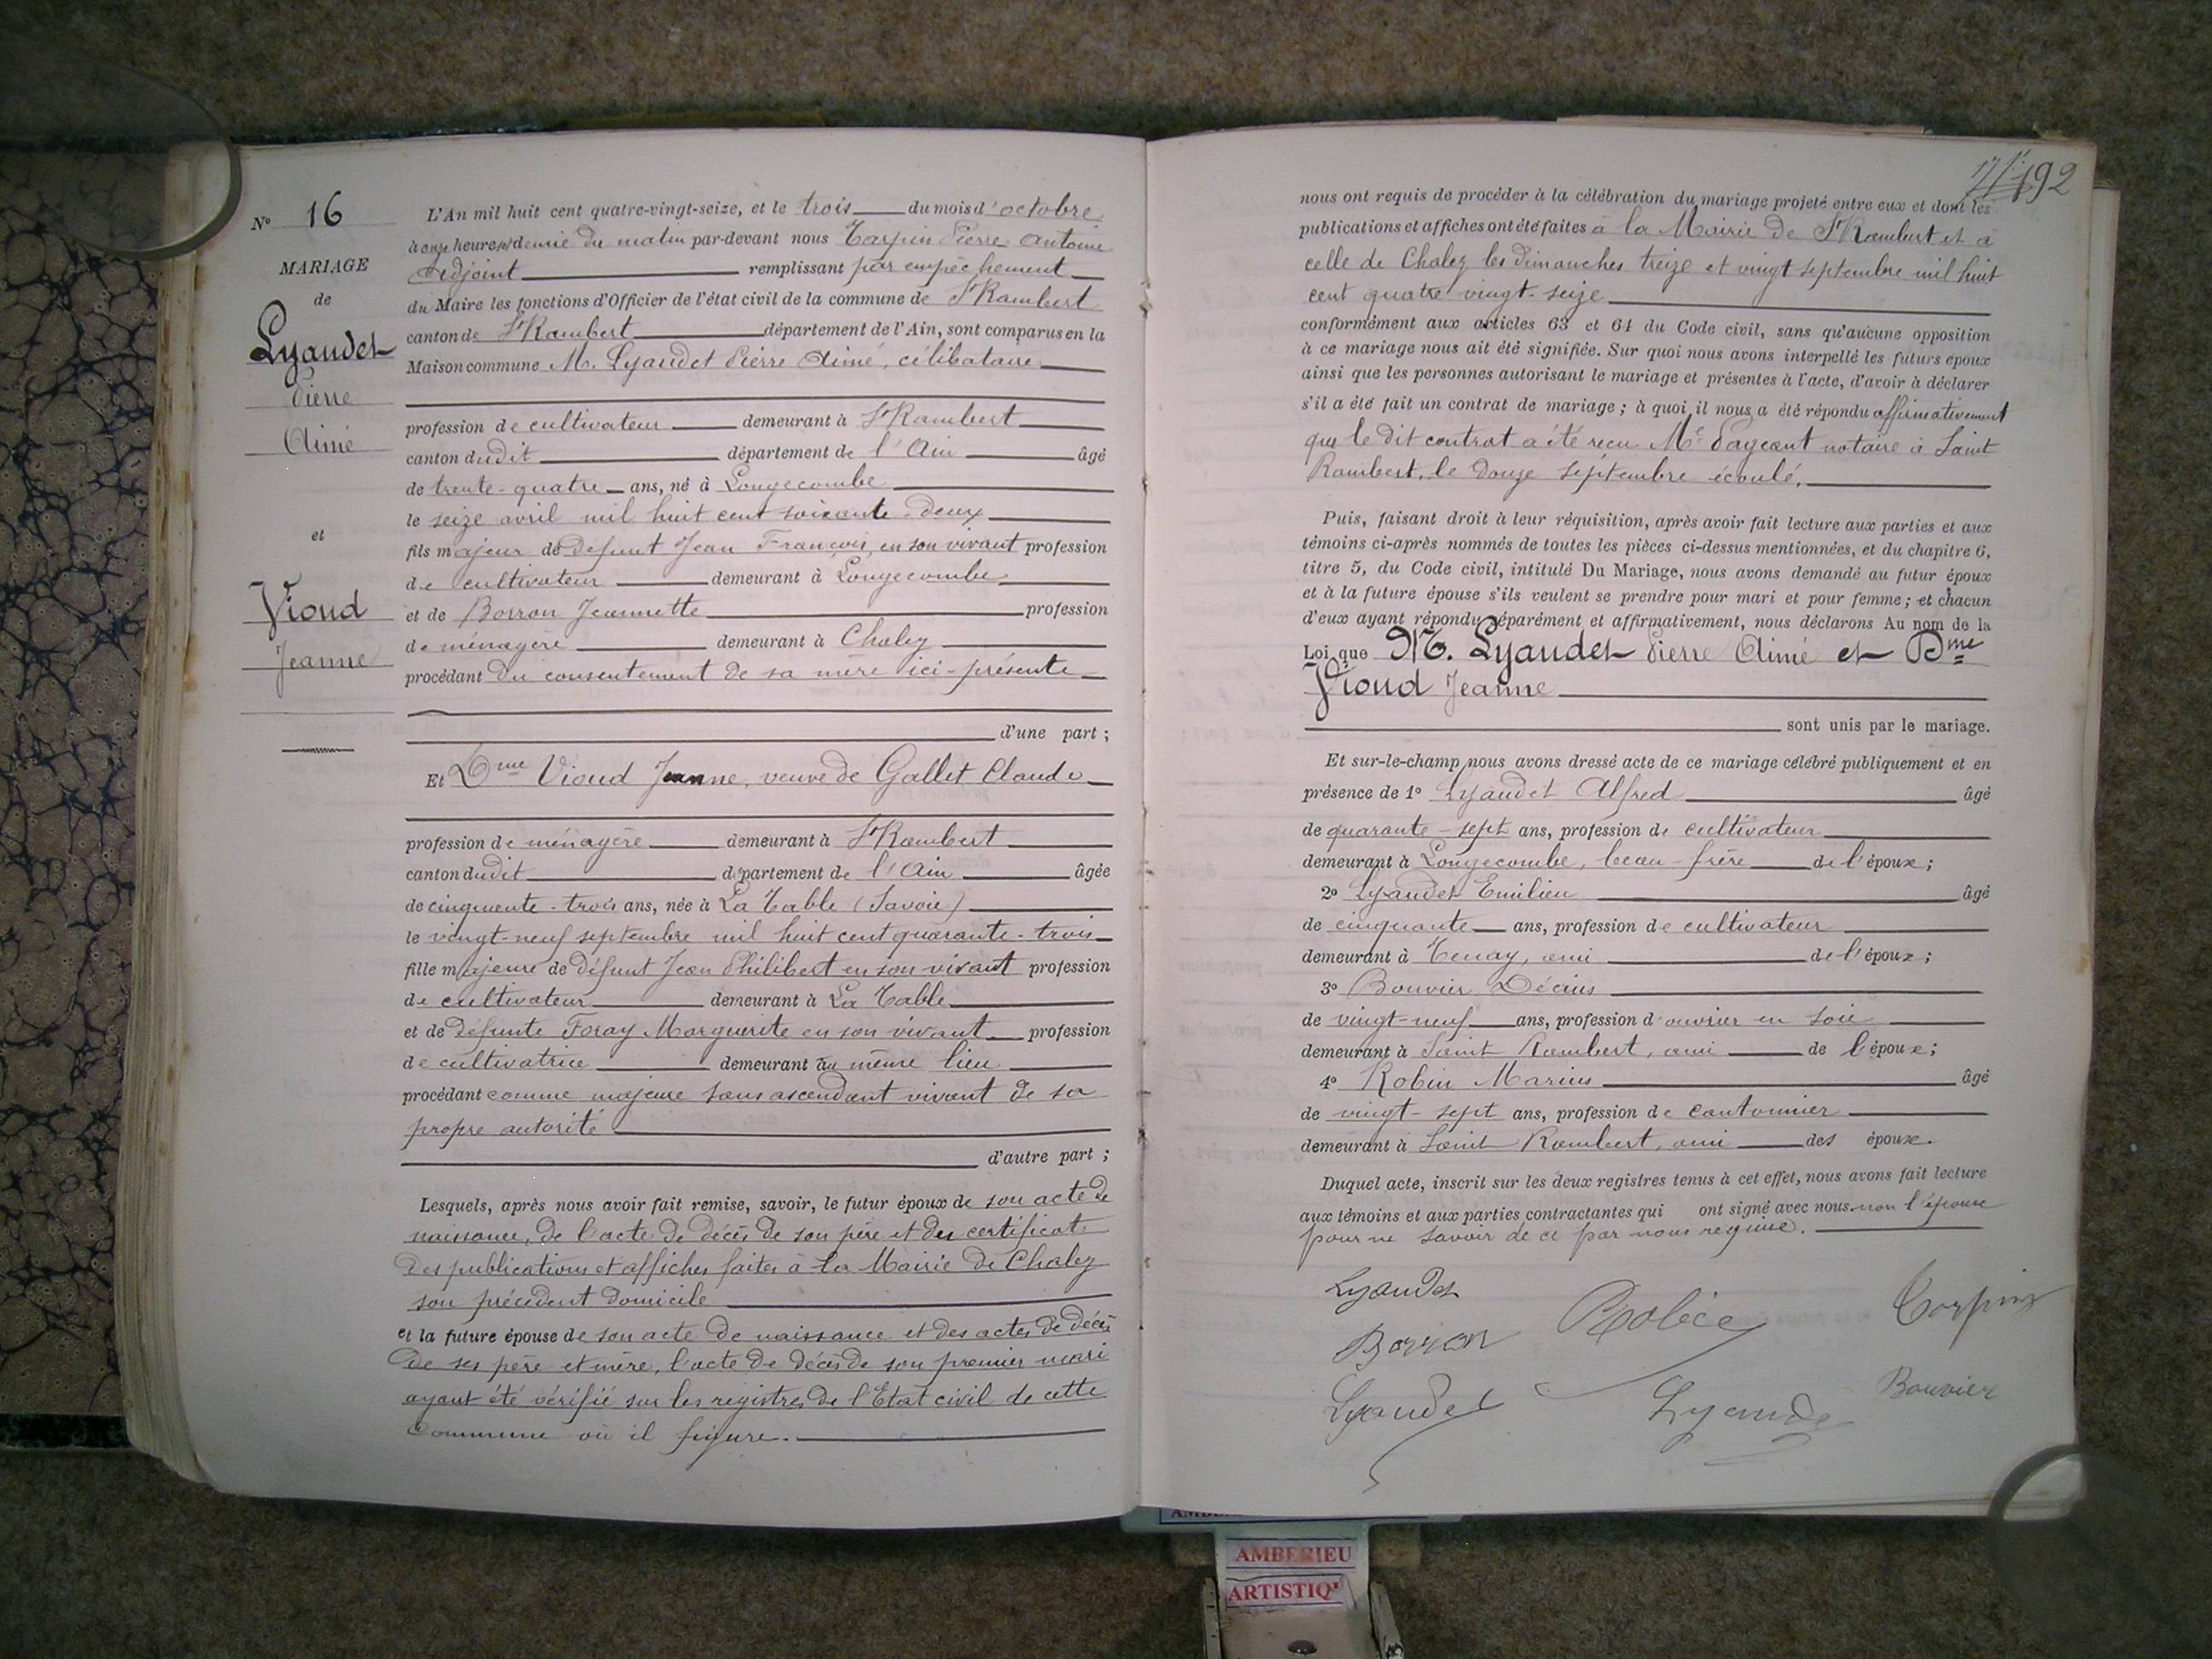 N° 16
MARIAGE
de
Lyaudet
Pierre
Aimé
et
Vioud
Jeanne
L'An mil huit cent quatre-vingt-seize, et le trois du mois d'octobre
à onze heures et demie du matin par-devant nous Tarpin Pierre Antoine
Adjoint remplissant par empêchement
du Maire les fonctions d'Officier de l'état civil de la commune de St Rambert
canton de St Rambert département de l'Ain, sont comparus en la
Maison commune M. Lyaudet Pierre Aimé, célibataire
profession de cultivateur demeurant à St Rambert
canton dudit département de l'Ain âgé
de trente-quatre ans, né à Longecombe
le seize avril mil huit cent soixante-deux
fils majeur de défunt Jean François, en son vivant profession
de cultivateur demeurant à Longecombe
et de Borron Jeannette profession
de ménagère demeurant à Chaley
procédant du consentement de sa mère ici-présente
d'une part ;
Et Dme Vioud Jeanne, veuve de Gallet Claude
profession de ménagère demeurant à St Rambert
canton dudit département de l'Ain âgée
de cinquante-trois ans, née à La Table (Savoie)
le vingt-neuf septembre mil huit cent quarante-trois
fille majeure de défunt Jean Philibert en son vivant profession
de cultivateur demeurant à La Table
et de défunte Foray Marguerite en son vivant profession
de cultivatrice demeurant au même lieu
procédant comme majeure sans ascendant vivant de sa
propre autorité
d'autre part ;
Lesquels, après nous avoir fait remise, savoir, le futur époux de son acte de
naissance, de l'acte de décès de son père et du certificat
des publications et affiches faites à la Mairie de Chaley
son précédent domicile
et la future épouse de son acte de naissance et des actes de décès
de ses père et mère, l'acte de décès de son premier mari
ayant été vérifié sur les registres de l'Etat civil de cette
commune où il figure.
192
nous ont requis de procéder à la célébration du mariage projeté entre eux et dont les
publications et affiches ont été faites à la Mairie de St Rambert et à
celle de Chaley les dimanches treize et vingt septembre mil huit
cent quatre vingt-seize
conformément aux articles 63 et 64 du Code civil, sans qu'aucune opposition
à ce mariage nous ait été signifiée. Sur quoi nous avons interpellé les futurs époux
ainsi que les personnes autorisant le mariage et présentes à l'acte, d'avoir à déclarer
s'il a été fait un contrat de mariage ; à quoi il nous a été répondu affirmativement
que le dit contrat a été reçu Me Pageaut notaire à Saint
Rambert, le douze septembre écoulé.
Puis, faisant droit à leur réquisition, après avoir fait lecture aux parties et aux
témoins ci-après nommés de toutes les pièces ci-dessus mentionnées, et du chapitre 6,
titre 5, du Code civil, intitulé Du Mariage, nous avons demandé au futur époux
et à la future épouse s'ils veulent se prendre pour mari et pour femme ; et chacun
d'eux ayant répondu séparément et affirmativement, nous déclarons Au nom de la
Loi que M. Lyaudet Pierre Aimé et Dme
Vioud Jeanne
sont unis par le mariage.
Et sur-le-champ nous avons dressé acte de ce mariage célébré publiquement et en
présence de 1° Lyaudet Alfred âgé
de quarante-sept ans, profession de cultivateur
demeurant à Longecombe, beau-frère de l'époux ;
2° Lyaudet Emilien âgé
de cinquante ans, profession de cultivateur
demeurant à Tenay, ami de l'époux ;
3° Bouvier Décius
de vingt-neuf ans, profession d'ouvrier en soie
demeurant à Saint Rambert, ami de l'époux ;
4° Robin Marius âgé
de vingt-sept ans, profession de cantonnier
demeurant à Saint Rambert, ami des époux.
Duquel acte, inscrit sur les deux registres tenus à cet effet, nous avons fait lecture
aux témoins et aux parties contractantes qui ont signé avec nous, non l'épouse
pour ne savoir de ce par nous requise.
Lyaudet
Tarpin
Borron
Bouvier
Lyaudet
Lyaude
AMBERIEU
ARTISTIQ